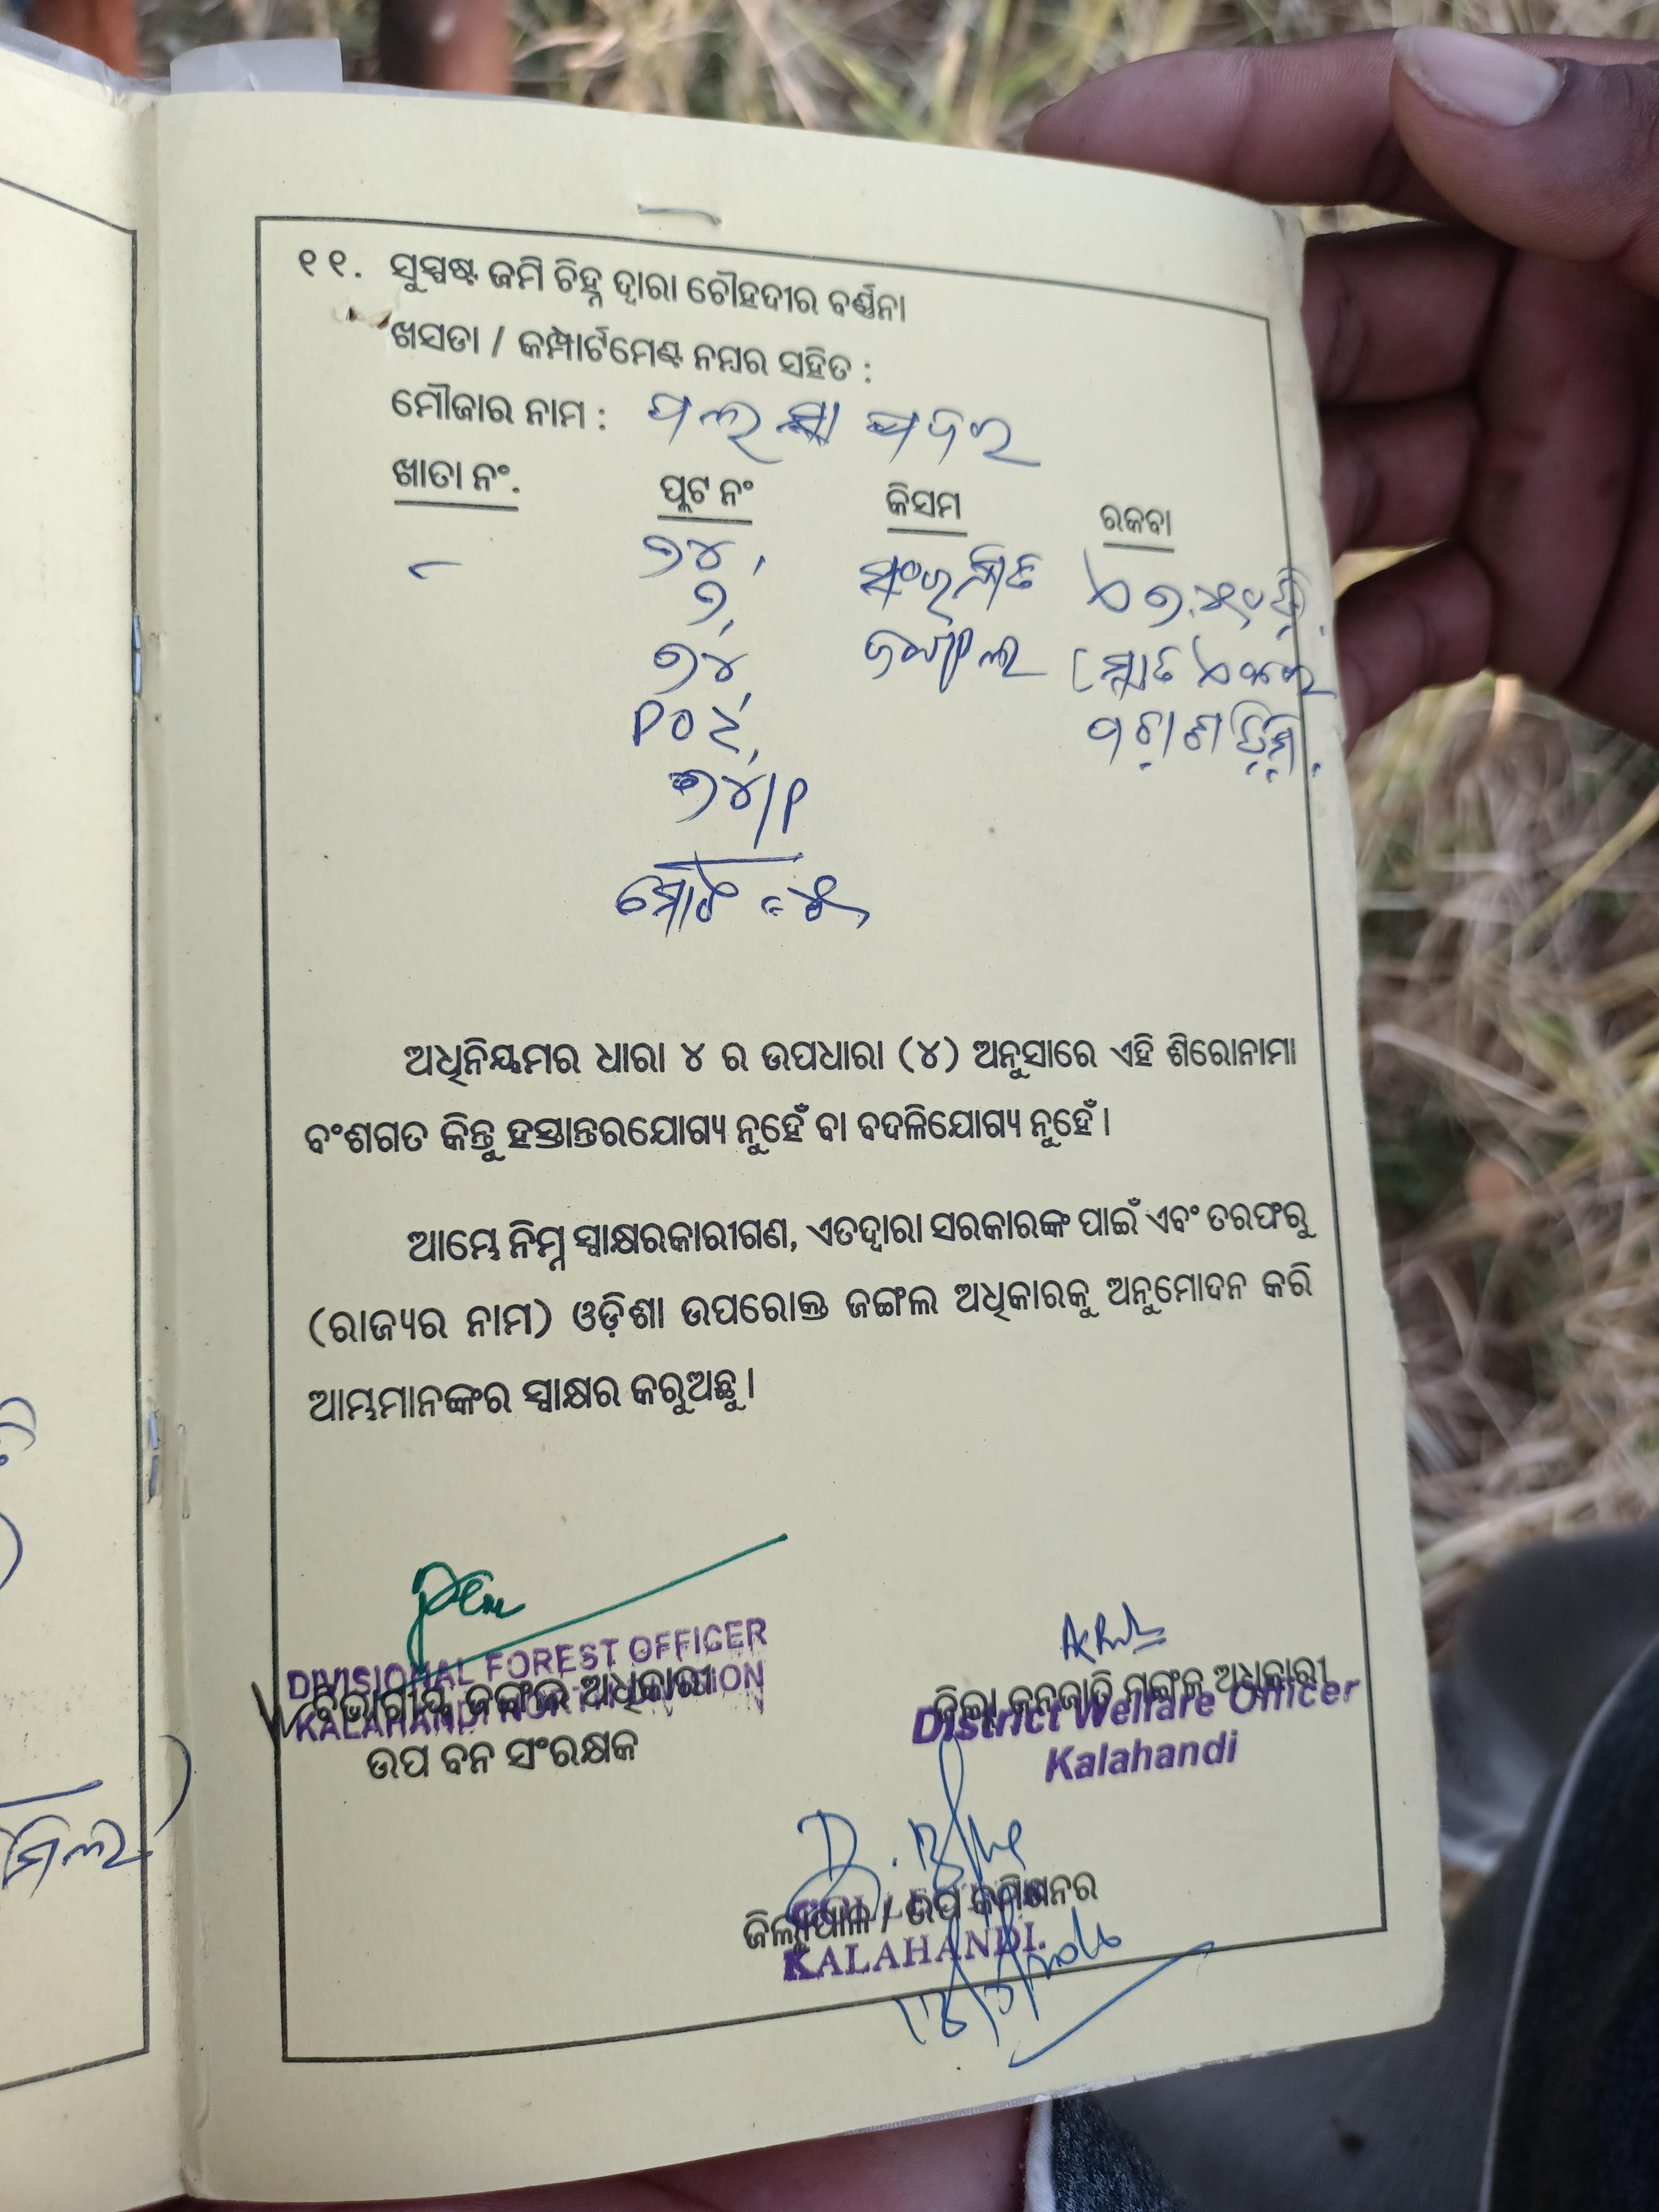 ୧୧. ସୁସ୍ପଷ୍ଟ ଜମି ଚିହ୍ନ ଦ୍ୱାରା ଚୌହଦୀର ବର୍ଣ୍ଣନା
ଖସଡା / କମ୍ପାର୍ଟମେଣ୍ଟ ନମ୍ବର ସହିତ :
ମୌଜାର ନାମ : ପଲସା ପଦର
ଖାତା ନଂ. ପ୍ଲଟ ନଂ କିସମ ରକବା
୭୪, ସଂରକ୍ଷିତ
୭,
୭୪, ଜଙ୍ଗଲ
P୦୨,
୭୪/P
ମୋଟ = ୫
ଅଧିନିୟମର ଧାରା ୪ ର ଉପଧାରା (୪) ଅନୁସାରେ ଏହି ଶିରୋନାମା
ବଂଶଗତ କିନ୍ତୁ ହସ୍ତାନ୍ତରଯୋଗ୍ୟ ନୁହେଁ ବା ବଦଳିଯୋଗ୍ୟ ନୁହେଁ ।
ଆମ୍ଭେ ନିମ୍ନ ସ୍ୱାକ୍ଷରକାରୀଗଣ, ଏତଦ୍ୱାରା ସରକାରଙ୍କ ପାଇଁ ଏବଂ ତରଫରୁ
(ରାଜ୍ୟର ନାମ) ଓଡ଼ିଶା ଉପରୋକ୍ତ ଜଙ୍ଗଲ ଅଧିକାରକୁ ଅନୁମୋଦନ କରି
ଆମ୍ଭମାନଙ୍କର ସ୍ୱାକ୍ଷର କରୁଅଛୁ ।
DIVISIONAL FOREST OFFICER
KALAHANDI NORTH DIVISION
ବିଭାଗୀୟ ଜଙ୍ଗଲ ଅଧିକାରୀ
ଉପ ବନ ସଂରକ୍ଷକ
ଜିଲ୍ଲା ଜନଜାତି ମଙ୍ଗଳ ଅଧିକାରୀ
District Welfare Officer
Kalahandi
ଜିଲ୍ଲାପାଳ / ଉପ କମିଶନର
KALAHANDI.